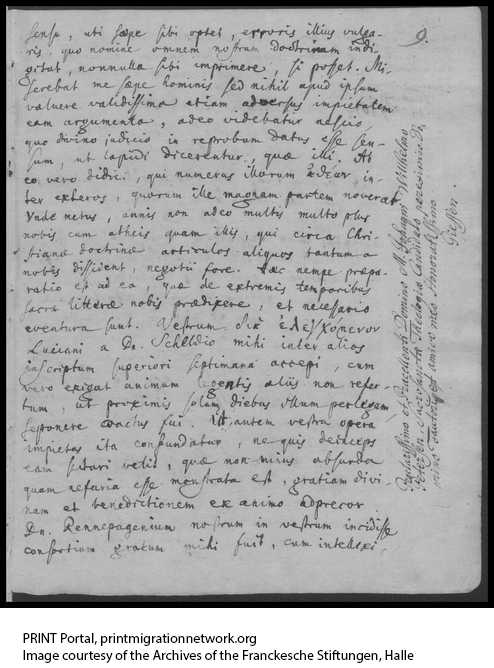 9.
sense, uti sæpe sibi optet, erroris illius vulga-
ris, quo nomine omnem nostram doctrinam indi-
gitat, nonnulla sibi imprimere, si posset. Mi-
serebat me sæpe hominis sed nihil apud ipsum
valuere validissima etiam adversus impietatem
eam argumenta, adeo videbatur nescio
quo divino judicio in reprobum datus esse sen-
sum, ut lapidi dicerentur, quæ illi. Ab
eo vero didici, qui numerus illorum sit in-
ter exteros, quorum ille magnam partem noverat.
Unde metus, annis non adeo multis multo plus
nobis cum atheis quam illis, qui circa Chri-
stianæ doctrinæ articulos aliquos tantum a
nobis dissident, negotii fore. Hæc nempe præpa-
ratio est ad ea, quæ de extremis temporibus
sacræ litteræ nobis prædixere, et necessario
eventura sunt. Vestrum
Luciani a Dn. Scheldio mihi inter alios
inscriptum superiori septimana accepi, cum
vero exigat animum agentis aliis non refer-
tum, ut proximis solum diebus illum perlegam
seponere coactus fui. Ut autem vestra opera
impietas ita confundatur, ne quis deinceps
eam sectari velit, quæ non minus absurda
quam nefaria esse monstrata est, gratiam divi-
nam et benedictionem ex animo adprecor.
Dn. Rennepagenium nostrum in vestrum incidisse
consortium gratum mihi fuit, cum intellexi,
Præclarissimo et Excellenti Domino M. Johanni Wilhelmo
Petersen, Sacrosanctæ Theologiæ Candidato
amico meo Honoratissimo
Giessen.
PRINT Portal, printmigrationnetwork.org
Image courtesy of the Archives of the Franckesche Stiftungen, Halle